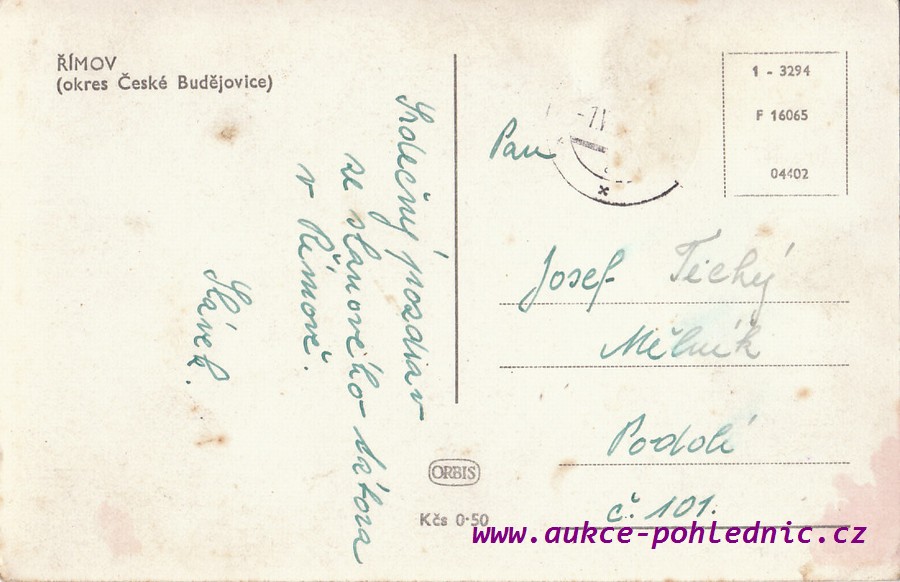 ŘÍMOV
(okres České Budějovice)
Srdečný pozdrav
ze stanového tábora
v Římově.
Slávek.
1 - 3294
F 16065
04402
-7.1
Pan
Josef Tichý
Mělník
Podolí
č. 101.
ORBIS
Kčs 0·50
www.aukce-pohlednic.cz